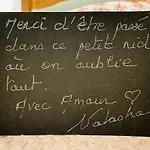 Merci d'être passé
dans ce petit nid
où on oublie
tout.
Avec Amour ♡
Natasha